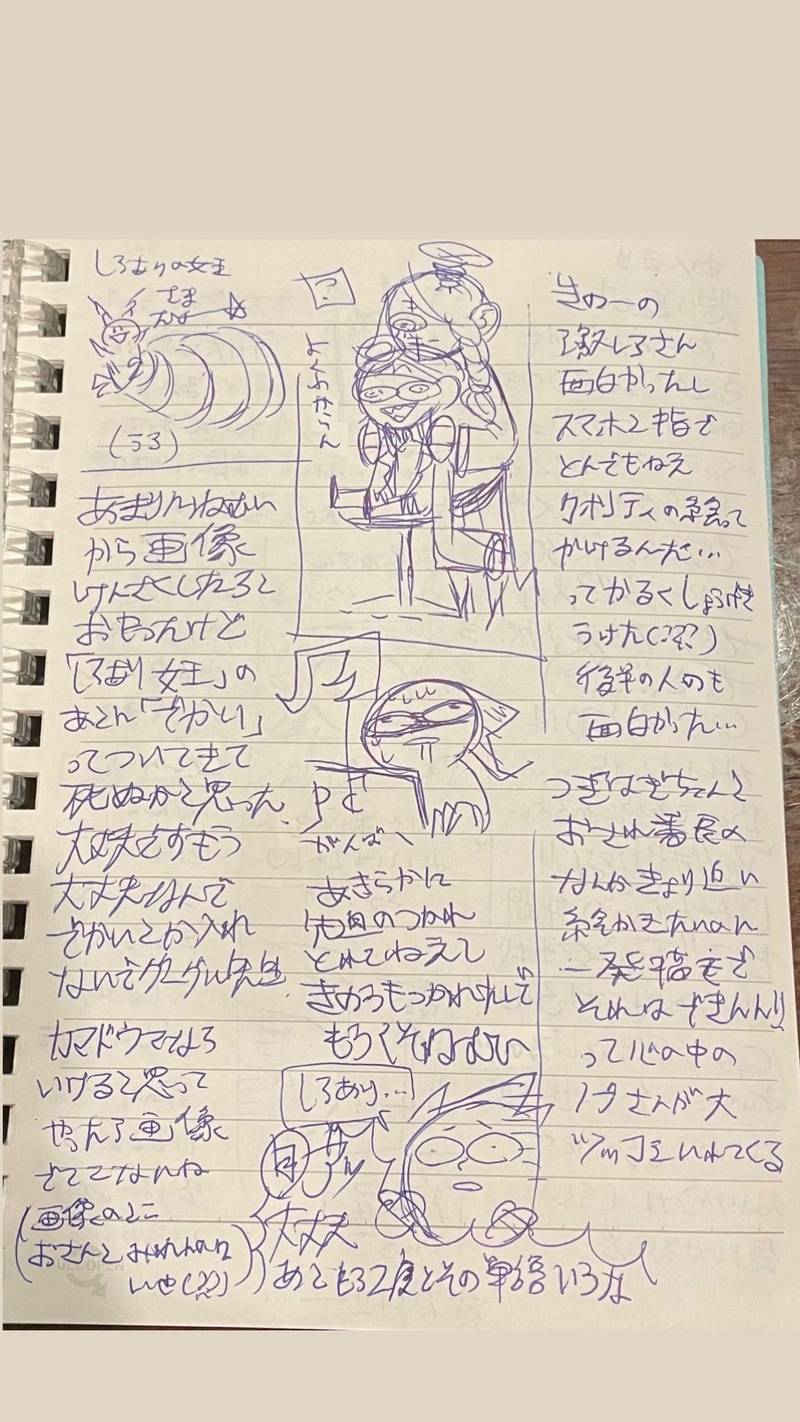 しろありの女王
さま
だよ
(ララ3)
あまりにねむい
から画像
けんさくしたろと
おもったけど
「しろあり 女王」の
あとに「でかい」
ってついてきて
死ぬかと思った、
大丈夫ですもう
大丈夫なんで
でかいとか入れ
ないでグーグル先生
カマドウマなら
いけると思って
やったら画像
でてこないね
(画像のとこ
おさんと
?
よくわからん
がんばへ
あきらかに
先週のつかれ
とれてねえし
きのうもつかれたしで
もうくそねむい
しろあり…
大丈夫
きのーの
面白かったし
スマホと指で
とんでもねえ
クオリティの絵って
かけるんだ…
ってかるくしょうげき
うけた(???)
後半の人のも
面白かった…
つぎはぎちゃんと
おされ番長の
なんかきょり近い
絵かきたいのに
一発描きで
それはできんやろ
って心の中の
ノブさんが大
ツッコミいれてくる